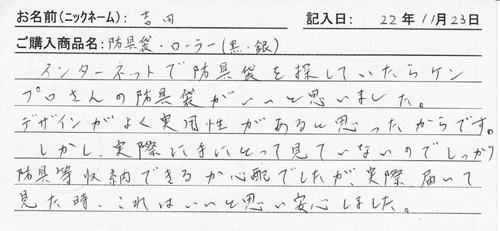 お名前(ニックネーム): 吉田 記入日: 22年11月23日
ご購入商品名: 防具袋・ローラー(黒・銀)
インターネットで防具袋を探していたらケン
プロさんの防具袋がいいと思いました。
デザインがよく実用性があると思ったからです。
しかし、実際に手にとって見ていないのでしっかり
防具等収納できるか心配でしたが、実際、届いて
見た時、これはいいと思い安心しました。